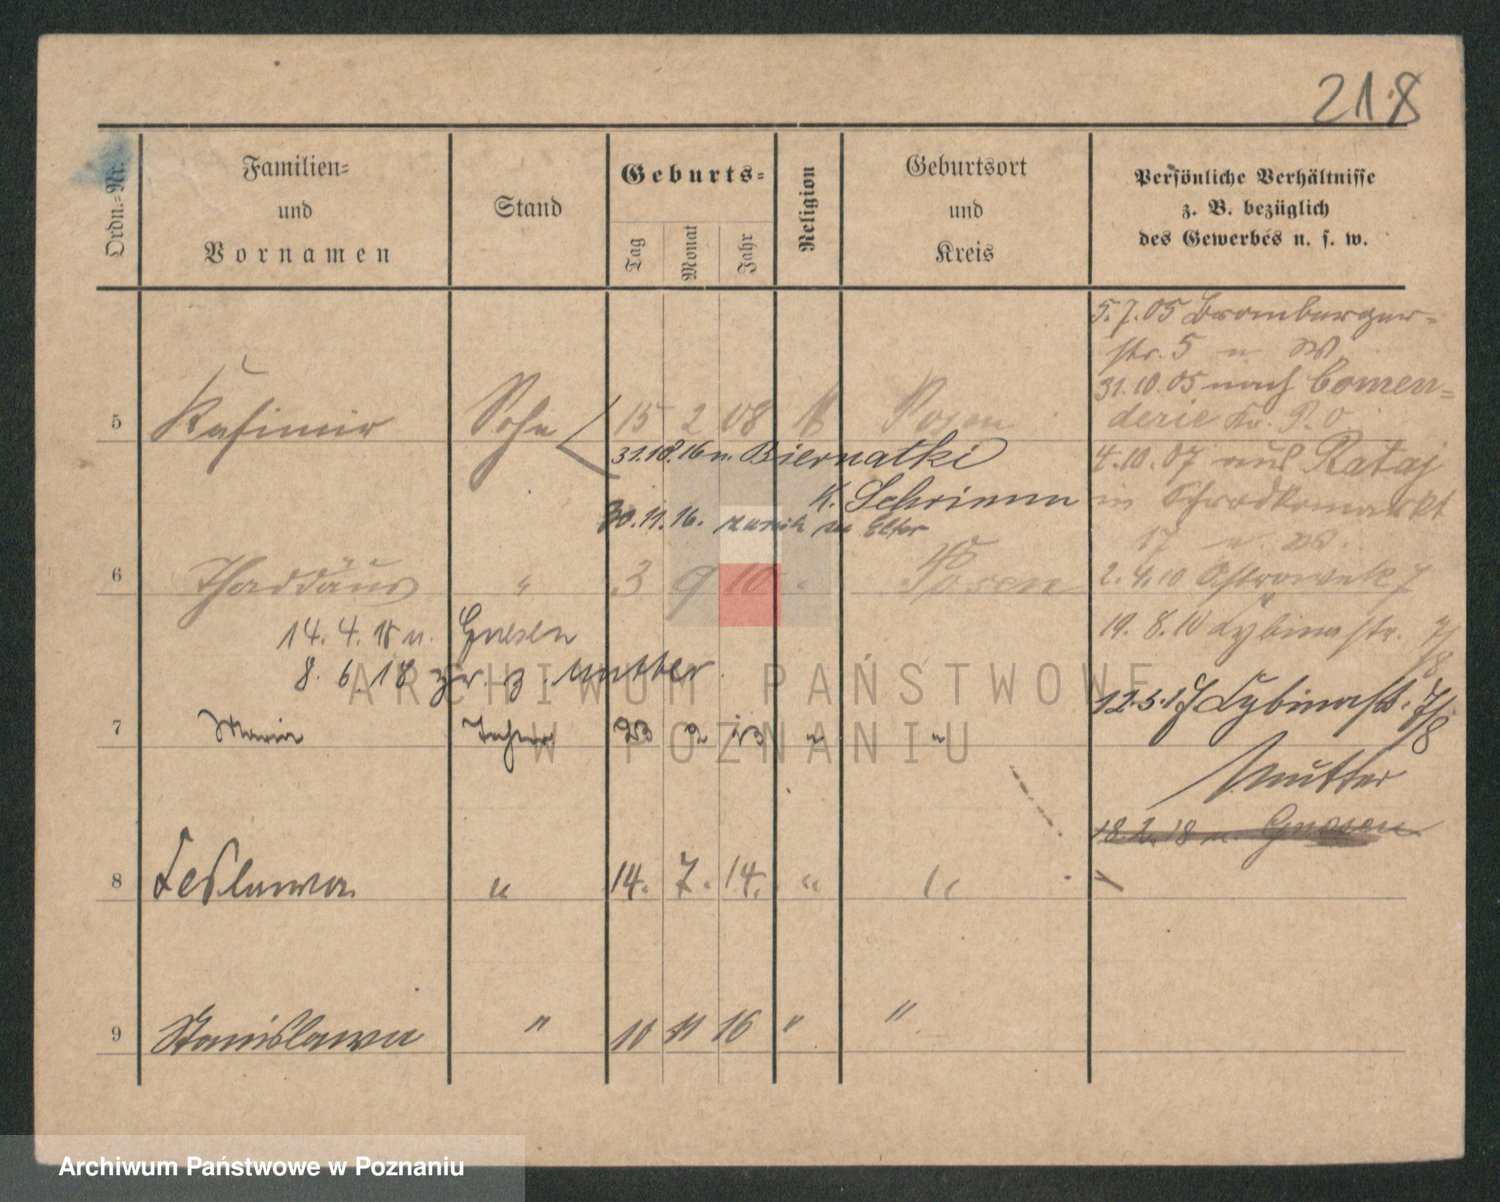 218
Ordn.-Nr.
Familien-
und
Vornamen
Stand
Geburts-
Tag
Monat
Jahr
Religion
Geburtsort
und
Kreis
Persönliche Verhältnisse
z. B. bezüglich
des Gewerbes u. s. w.
5.7.05 Bromberger-
str. 5 u. W
31.10.05 nach Comen-
derie Kr. P. O.
5 Kasimir Sohn 15 2 08 K Posen
31.10.16 n. Biernatki
K. Schrimm
4.10.07 aus Rataj
in Schrodkamarkt
17 u. W.
30.11.16. zurück zu Elter
6 Thaddäus " 3 9 10 " Posen
2.4.10 Ostrowek 7
14.4.18 n. Gnesen
19.8.10 Zybinastr. 7/8
8.6.18 zr. z. Mutter
12.3.17 Zybinastr. 7/8
7 Maria Tochter 23 2 13 " "
Mutter
18.2.18 n. Gnesen
8 Zeslawa " 14. 7. 14. " "
9 Stanislawa " 10 11 16 " "
ARCHIWUM PAŃSTWOWE
W POZNANIU
Archiwum Państwowe w Poznaniu